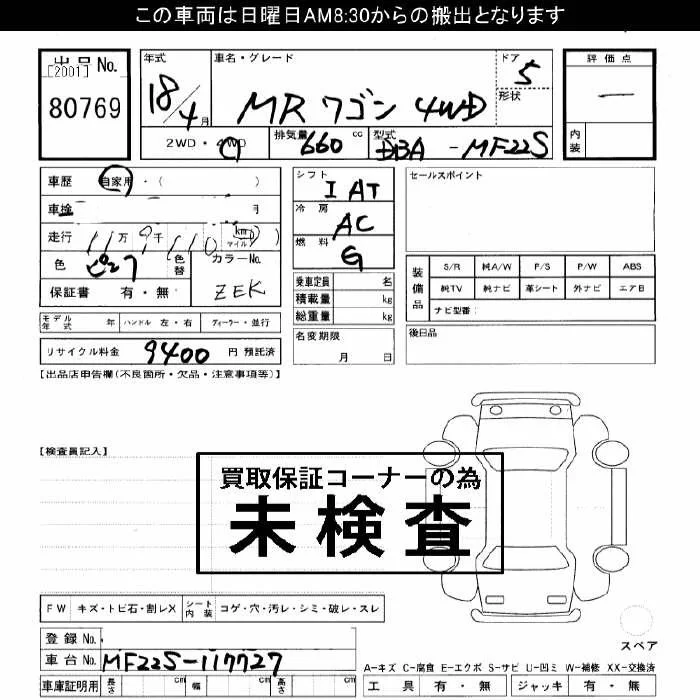 この車両は日曜日AM8:30からの搬出となります
出品 No.
[2001]
80769
年式
18/4月
車名・グレード
MR ワゴン 4WD
ドア
5
形状
評価点
一
内装
2WD・4WD
排気量 660 cc
型式 DBA-MF22S
車歴 自家用・( )
車検 月
走行 11万9千110 (km マイル)
色 ピンク 色替
カラーNo. ZEK
保証書 有・無
シフト I AT
冷房 AC
燃料 G
乗車定員 名
積載量 kg
総重量 kg
名変期限
月 日
セールスポイント
装備品
S/R 純A/W P/S P/W ABS
純TV 純ナビ 革シート 外ナビ エアB
ナビ型番:
後日品
モデル年式 年 ハンドル 左・右 ディーラー・並行
リサイクル料金 9400 円 預託済
【出品店申告欄(不良箇所・欠品・注意事項等)】
【検査員記入】
買取保証コーナーの為
未検査
FW キズ・トビ石・割レX シート内装 コゲ・穴・汚レ・シミ・破レ・スレ
スペア
登録 No.
車台 No. MF22S-117727
車庫証明用 長さ cm 幅 cm 高さ cm
A-キズ C-腐食 E-エクボ S-サビ U-凹ミ W-補修 XX-交換済
工具 有・無 ジャッキ 有・無